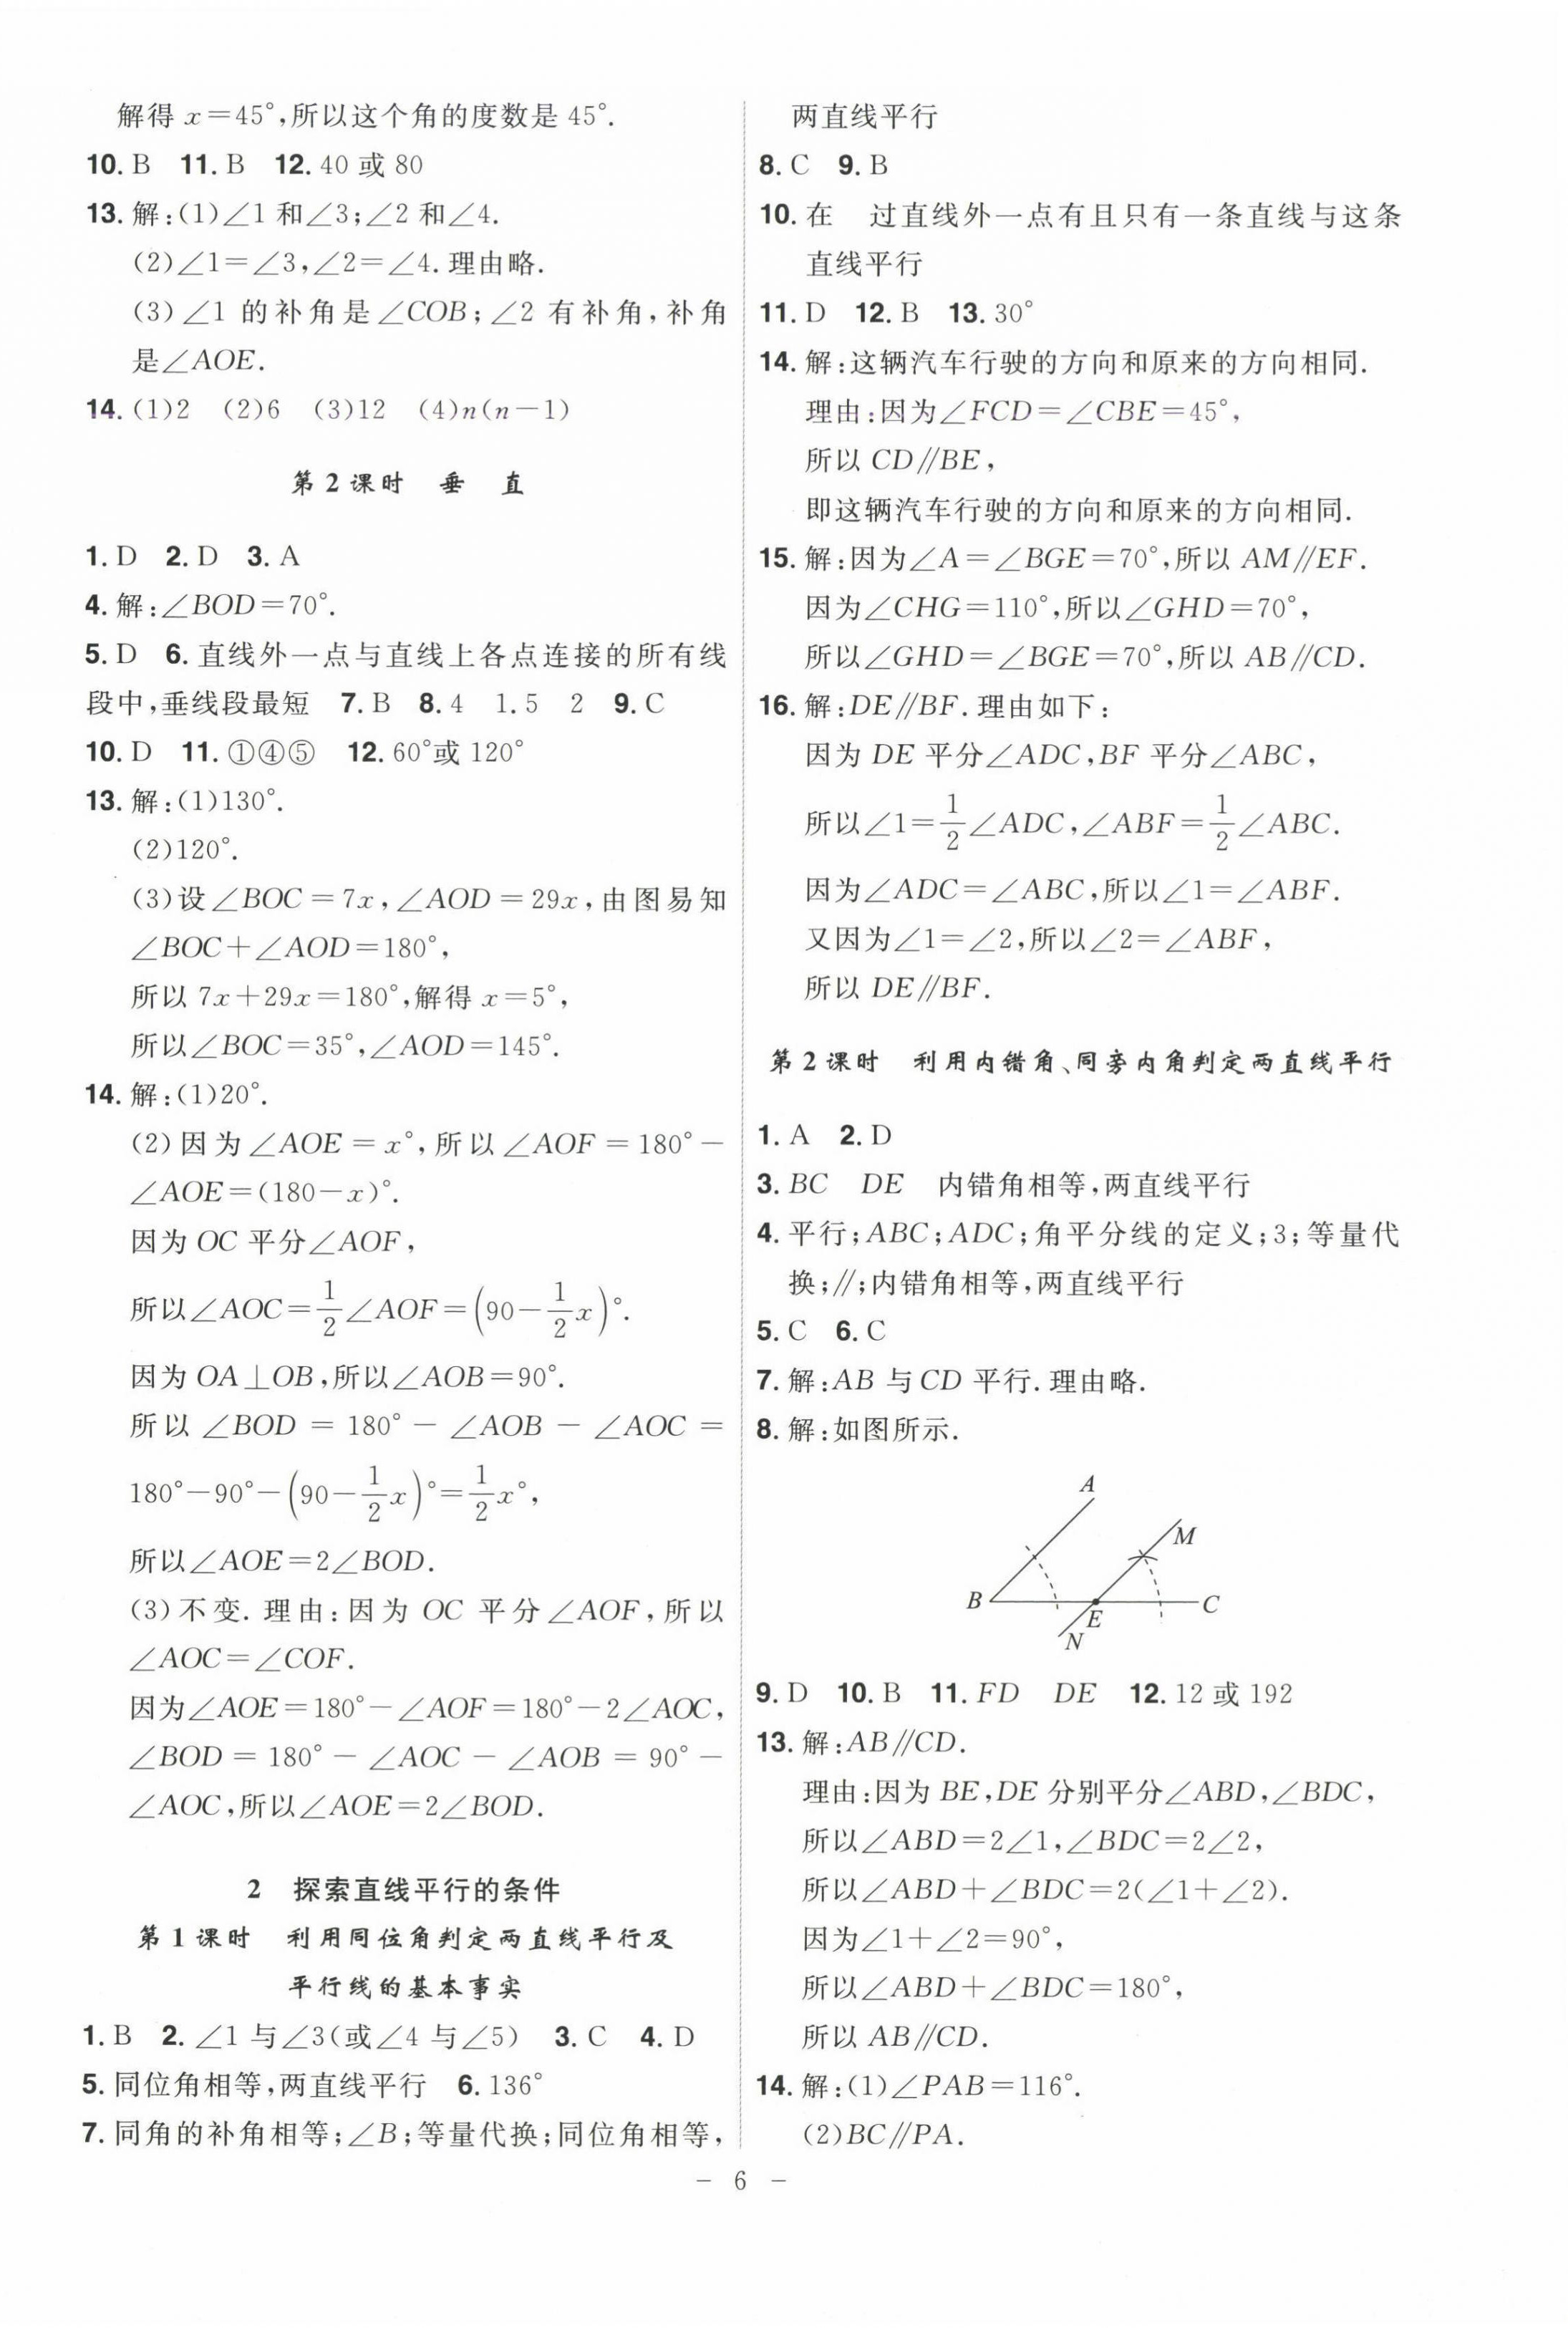 解得 x=45°,所以这个角的度数是 45°.
10. B 11. B 12. 40 或 80
13. 解:(1)∠1 和∠3;∠2 和∠4.
(2)∠1=∠3,∠2=∠4. 理由略.
(3)∠1 的补角是∠COB;∠2 有补角,补角
是∠AOE.
14. (1)2 (2)6 (3)12 (4)n(n-1)
第 2 课时 垂 直
1. D 2. D 3. A
4. 解:∠BOD=70°.
5. D 6. 直线外一点与直线上各点连接的所有线
段中,垂线段最短 7. B 8. 4 1.5 2 9. C
10. D 11. ①④⑤ 12. 60°或 120°
13. 解:(1)130°.
(2)120°.
(3)设∠BOC=7x,∠AOD=29x,由图易知
∠BOC+∠AOD=180°,
所以 7x+29x=180°,解得 x=5°,
所以∠BOC=35°,∠AOD=145°.
14. 解:(1)20°.
(2)因为∠AOE=x°,所以∠AOF=180°-
∠AOE=(180-x)°.
因为 OC 平分∠AOF,
所以∠AOC=1/2∠AOF=(90-1/2x)°.
因为 OA⊥OB,所以∠AOB=90°.
所以∠BOD=180°-∠AOB-∠AOC=
180°-90°-(90-1/2x)°=1/2x°,
所以∠AOE=2∠BOD.
(3)不变. 理由:因为 OC 平分∠AOF,所以
∠AOC=∠COF.
因为∠AOE=180°-∠AOF=180°-2∠AOC,
∠BOD=180°-∠AOC-∠AOB=90°-
∠AOC,所以∠AOE=2∠BOD.
2 探索直线平行的条件
第 1 课时 利用同位角判定两直线平行及
平行线的基本事实
1. B 2. ∠1 与∠3(或∠4 与∠5) 3. C 4. D
5. 同位角相等,两直线平行 6. 136°
7. 同角的补角相等;∠B;等量代换;同位角相等,
两直线平行
8. C 9. B
10. 在 过直线外一点有且只有一条直线与这条
直线平行
11. D 12. B 13. 30°
14. 解:这辆汽车行驶的方向和原来的方向相同.
理由:因为∠FCD=∠CBE=45°,
所以 CD∥BE,
即这辆汽车行驶的方向和原来的方向相同.
15. 解:因为∠A=∠BGE=70°,所以 AM∥EF.
因为∠CHG=110°,所以∠GHD=70°,
所以∠GHD=∠BGE=70°,所以 AB∥CD.
16. 解:DE∥BF. 理由如下:
因为 DE 平分∠ADC,BF 平分∠ABC,
所以∠1=1/2∠ADC,∠ABF=1/2∠ABC.
因为∠ADC=∠ABC,所以∠1=∠ABF.
又因为∠1=∠2,所以∠2=∠ABF,
所以 DE∥BF.
第 2 课时 利用内错角、同旁内角判定两直线平行
1. A 2. D
3. BC DE 内错角相等,两直线平行
4. 平行;ABC;ADC;角平分线的定义;3;等量代
换;∥;内错角相等,两直线平行
5. C 6. C
7. 解:AB 与 CD 平行. 理由略.
8. 解:如图所示.
A
M
B
E
C
N
9. D 10. B 11. FD DE 12. 12 或 192
13. 解:AB∥CD.
理由:因为 BE,DE 分别平分∠ABD,∠BDC,
所以∠ABD=2∠1,∠BDC=2∠2,
所以∠ABD+∠BDC=2(∠1+∠2).
因为∠1+∠2=90°,
所以∠ABD+∠BDC=180°,
所以 AB∥CD.
14. 解:(1)∠PAB=116°.
(2)BC∥PA.
- 6 -